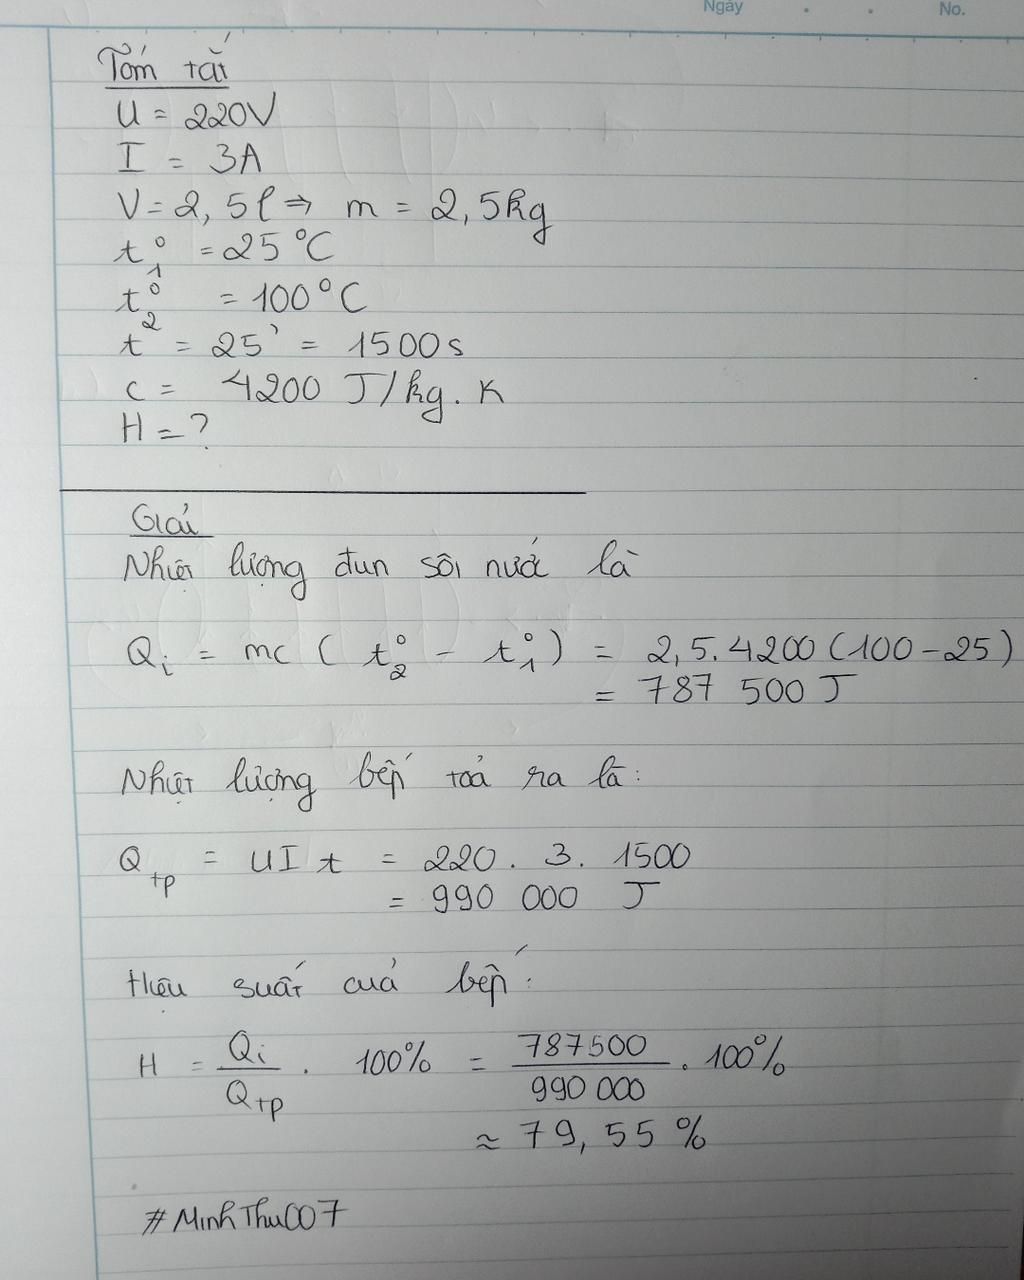 Ngày . . No.
Tóm tắt
U = 220V
I = 3A
V = 2,5l ⇒ m = 2,5kg
t₁° = 25°C
t₂° = 100°C
t = 25' = 1500s
c = 4200 J/kg.K
H = ?
Giải
Nhiệt lượng đun sôi nước là
Qᵢ = mc ( t₂° - t₁° ) = 2,5.4200(100-25)
= 787 500 J
Nhiệt lượng bếp toả ra là:
Qtp = UIt = 220 . 3. 1500
= 990 000 J
Hiệu suất của bếp:
H = Qi/Qtp . 100% = 787500/990 000 . 100%
≈ 79,55 %
#MinhThu007